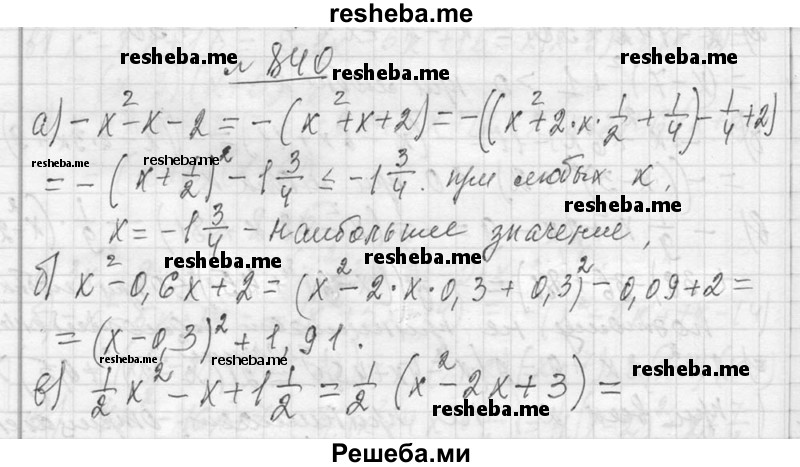 resheba.me
№ 840
resheba.me resheba.me resheba.me
а) -x²-x-2 = -(x²+x+2) = -((x²+2·x·1/2+1/4)-1/4+2)
resheba.me resheba.me
= -(x+1/2)²-1 3/4 ≤ -1 3/4. при любых x,
resheba.me
x = -1 3/4 - наибольшее значение,
resheba.me resheba.me
б) x²-0,6x+2 = (x²-2·x·0,3+0,3)²-0,09+2 =
= (x-0,3)²+1,91.
resheba.me resheba.me resheba.me
в) 1/2x²-x+1 1/2 = 1/2(x²-2x+3) =
resheba.me resheba.me
Решеба.ми